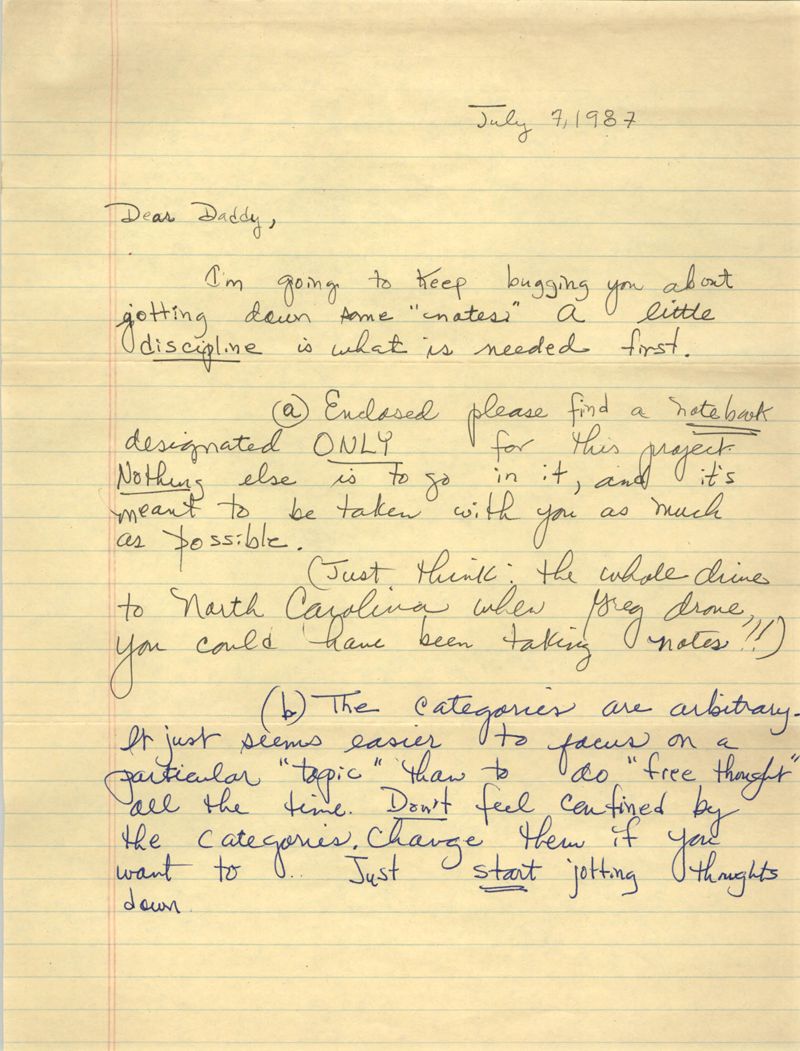 July 7, 1987
Dear Daddy,
I'm going to keep bugging you about
jotting down some "notes." A little
discipline is what is needed first.
(a) Enclosed please find a notebook
designated ONLY for this project.
Nothing else is to go in it, and it's
meant to be taken with you as much
as possible.
(Just think: the whole drive
to North Carolina when Greg drove,
you could have been taking notes!!!)
(b) The categories are arbitrary.
It just seems easier to focus on a
particular "topic" than to do "free thought"
all the time. Don't feel confined by
the categories. Change them if you
want to.. Just start jotting thoughts
down